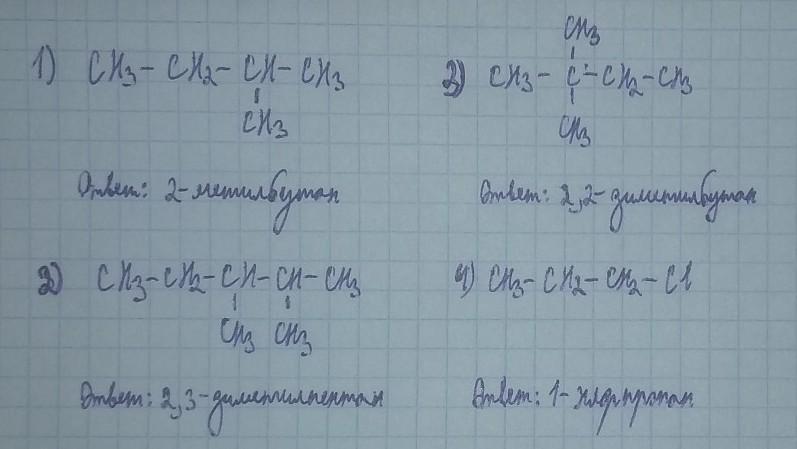 1) CH3 - CH2 - CH - CH3
CH3
Ответ: 2-метилбутан
CH3
3) CH3 - C - CH2 - CH3
CH3
Ответ: 2,2-диметилбутан
2) CH3 - CH2 - CH - CH - CH3
CH3 CH3
Ответ: 2,3-диметилпентан
4) CH3 - CH2 - CH2 - Cl
Ответ: 1-хлорпропан